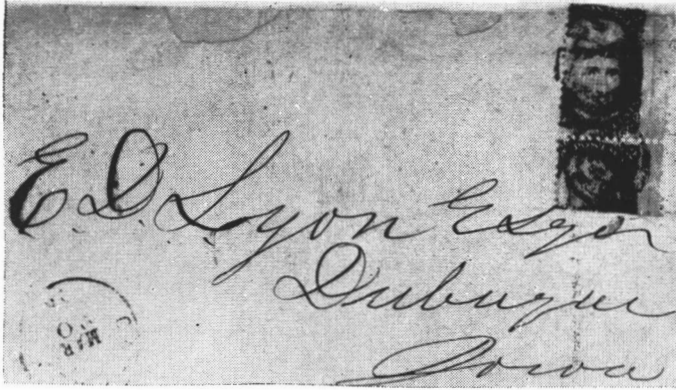 E. D. Lyon Esqr
Dubuque
Iowa
MAR